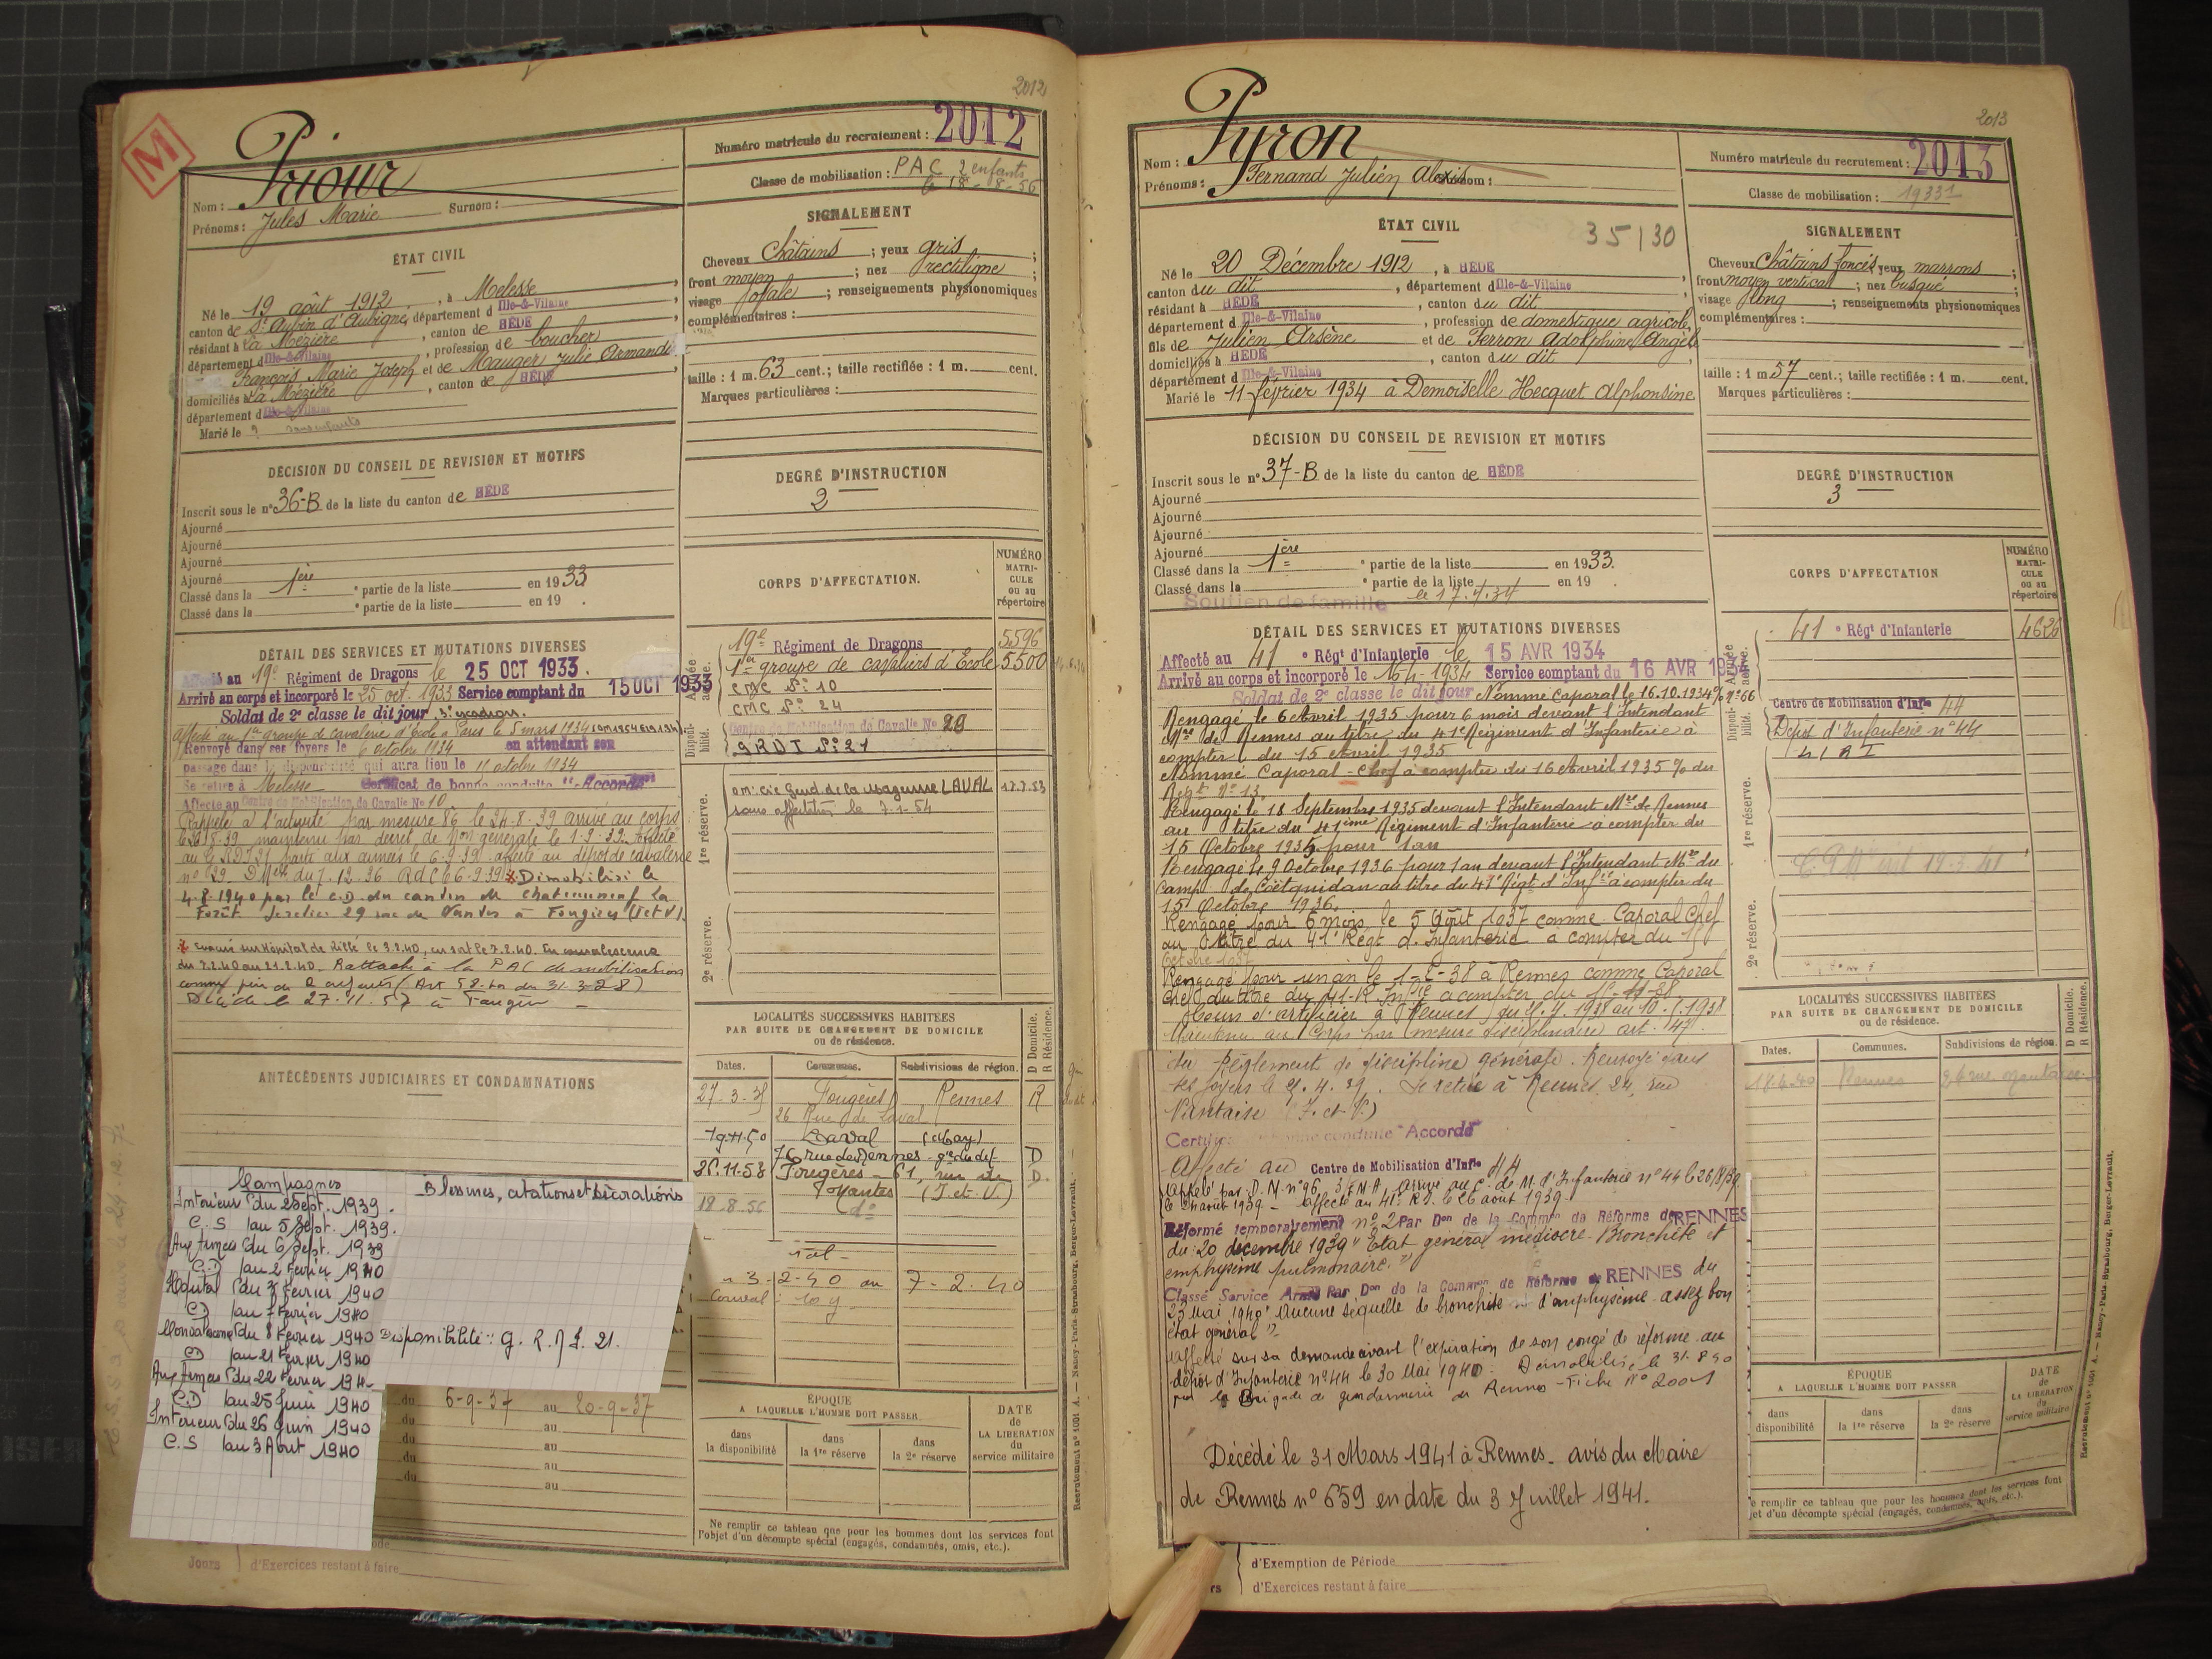 2012
M
Priour
Nom :
Prénoms : Jules Marie Surnom :
Numéro matricule du recrutement : 2012
Classe de mobilisation : PAC 2 enfants
le 18-8-56
ÉTAT CIVIL
Né le 19 août 1912, à Melesse,
canton de St Aubin d'Aubigné, département d Ille-&-Vilaine
résidant à La Mézière, canton de HÉDÉ
département d Ille-&-Vilaine, profession de boucher
François Marie Joseph et de Mauger Julie Armande
domiciliés à La Mézière, canton de HÉDÉ
département d Ille-&-Vilaine
Marié le
SIGNALEMENT
Cheveux Châtains ; yeux gris ;
front moyen ; nez rectiligne ;
visage ovale ; renseignements physionomiques
complémentaires :
taille : 1 m. 63 cent.; taille rectifiée : 1 m. cent.
Marques particulières :
DÉCISION DU CONSEIL DE REVISION ET MOTIFS
Inscrit sous le n° 36-B de la liste du canton de HÉDÉ
Ajourné
Ajourné
Ajourné
Ajourné
Classé dans la 1ère partie de la liste en 1933
Classé dans la partie de la liste en 19 .
DEGRÉ D'INSTRUCTION
3
CORPS D'AFFECTATION.
NUMÉRO MATRICULE ou au répertoire
DÉTAIL DES SERVICES ET MUTATIONS DIVERSES
Affecté au 19e Régiment de Dragons le 25 OCT 1933.
Arrivé au corps et incorporé le 25 oct. 1933 Service comptant du 15 OCT 1933
Soldat de 2e classe le dit jour, 3e escadron.
Affecté au 1er groupe de cavalerie d'Ecole à Paris le 5 mars 1934
Renvoyé dans ses foyers le 6 octobre 1934 en attendant son
passage dans la disponibilité qui aura lieu le 11 octobre 1934
Se retire à Melesse Certificat de bonne conduite "Accordé"
Affecté au Centre de Mobilisation de Cavalie No 10
Rappelé à l'activité par mesure 86 le 24-8-39 arrivé au corps
le 26.8.39 maintenu par décret de Mon générale le 1-9-39. Affecté
au G.R.D.I 21 parti aux armées le 6-9-39 affecté au dépôt de cavalerie
n° 29 Démobilisé le
4-8-1940 par le C.D. du canton de Chateauneuf La
Forêt se retire 29 rue de Nantes à Fougères (I et V).
Evacué sur Hôpital de Lille le 3.2.40, en sort le 7.2.40. En convalescence
du 8.2.40 au 21.2.40. Rattaché à la PAC de mobilisation
comme père de 2 enfants (Art 58 Loi du 31-3-28)
Décédé le 27.11.57 à Fougères
ANTÉCÉDENTS JUDICIAIRES ET CONDAMNATIONS
Armée active.
19e Régiment de Dragons 5596
1er groupe de cavaliers d'Ecole 5500
CMC No 10
CMC No 24
Disponibilité.
Centre de Mobilisation de Cavalie No 29
GRDI No 21
1re réserve.
LAVAL 12.2.53
sans affectation le 7-1-54
2e réserve.
LOCALITÉS SUCCESSIVES HABITÉES
PAR SUITE DE CHANGEMENT DE DOMICILE
ou de résidence.
D Domicile. R Résidence.
Dates. Communes. Subdivisions de région.
27-3-35 Fougères Rennes R
26 Rue de Laval
19-11-50 Laval (May)
76 rue de Rennes D
26.11.53 Fougères - 61, rue de D.
Nantes (I. et V.)
18-8-56 do
3-2-40 au 7-2-40
Campagnes
Intérieur du 2 Sept. 1939.
C.S au 5 Sept. 1939.
Aux Armées du 6 Sept. 1939
C.D au 2 Février 1940
Hôpital du 3 Février 1940
CD au 7 Février 1940
Convalescence du 8 Février 1940
CD au 21 Février 1940
Aux Armées du 22 Février 1940
C.D au 25 Juin 1940
Intérieur du 26 Juin 1940
C.S au 3 Août 1940
Blessures, citations et décorations
Disponibilité : G. R. D I. 21.
du 6-9-37 au 20-9-37
du au
du au
du au
du au
ÉPOQUE
A LAQUELLE L'HOMME DOIT PASSER
dans la disponibilité
dans la 1re réserve
dans la 2e réserve
DATE de LA LIBÉRATION du service militaire
Ne remplir ce tableau que pour les hommes dont les services font
l'objet d'un décompte spécial (engagés, condamnés, omis, etc.).
Jours d'Exercices restant à faire
Recrutement n° 1001 A. — Nancy-Paris-Strasbourg, Berger-Levrault.
2013
Pyron
Nom :
Prénoms : Fernand Julien Alexis Surnom :
Numéro matricule du recrutement : 2013
Classe de mobilisation : 1933
ÉTAT CIVIL
35/30
Né le 20 Décembre 1912, à HÉDÉ
canton du dit, département d Ille-&-Vilaine
résidant à HÉDÉ, canton du dit
département d Ille-&-Vilaine, profession de domestique agricole,
fils de Julien Arsène et de Ferron Adolphine Angèle
domiciliés à HÉDÉ, canton du dit
département d Ille-&-Vilaine
Marié le 11 février 1934 à Demoiselle Hecquet Alphonsine
SIGNALEMENT
Cheveux Châtains foncés yeux marrons ;
front moyen vertical ; nez busqué ;
visage long ; renseignements physionomiques
complémentaires :
taille : 1 m 57 cent.; taille rectifiée : 1 m. cent.
Marques particulières :
DÉCISION DU CONSEIL DE REVISION ET MOTIFS
Inscrit sous le n° 37-B de la liste du canton de HÉDÉ
Ajourné
Ajourné
Ajourné
Ajourné
Classé dans la 1ère partie de la liste en 1933.
Classé dans la partie de la liste en 19 .
Soutien de famille le 17.4.34
DEGRÉ D'INSTRUCTION
3
CORPS D'AFFECTATION
NUMÉRO MATRICULE ou au répertoire
DÉTAIL DES SERVICES ET MUTATIONS DIVERSES
Affecté au 41e Régt d'Infanterie le 15 AVR 1934
Arrivé au corps et incorporé le 16-4-1934 Service comptant du 16 AVR 1934
Soldat de 2e classe le dit jour Nommé Caporal le 16.10.1934 % n° 66
Rengagé le 6 Avril 1935 pour 6 mois devant l'Intendant
Mre de Rennes au titre du 41e Régiment d'Infanterie à
compter du 15 Avril 1935
Nommé Caporal-Chef à compter du 16 Avril 1935 % du
Régt N° 13.
Rengagé le 18 Septembre 1935 devant l'Intendant Mre de Rennes
au titre du 41ème Régiment d'Infanterie à compter du
15 Octobre 1935 pour 1 an
Rengagé le 9 Octobre 1936 pour 1 an devant l'Intendant Mre du
Camp de Coëtquidan au titre du 41e Régt d'Infie à compter du
15 Octobre 1936.
Rengagé pour 6 mois le 5 Août 1937 comme Caporal Chef
au titre du 41e Régt d'Infanterie à compter du 15
Octobre 1937
Rengagé pour un an le à Rennes comme Caporal
Chef au titre du 41e R. Infie à compter du
Cours d'artificier à Rennes
Maintenu au Corps par mesure disciplinaire art. 147
du Règlement de discipline générale. Renvoyé dans
ses foyers le 21.4.39. Se retire à Rennes, 24, rue
Nantaise (I. et V.)
Certificat de bonne conduite "Accordé"
Affecté au Centre de Mobilisation d'Infie 44
Rappelé par D.M. n° 96 3/E.M.A. Arrivé au C. de M. d'Infanterie n° 44 le 26/8/39
le 24 août 1939 - affecté au 41e R.I. le 26 août 1939.
Réformé temporairement n° 2 Par Don de la Common de Réforme de RENNES
du 20 décembre 1939 "Etat général médiocre. Bronchite et
emphysème pulmonaire."
Classé Service Armé Par Don de la Common de Réforme de RENNES du
23 mai 1940 "Aucune séquelle de bronchite ni d'emphysème. assez bon
état général"
Affecté sur sa demande avant l'expiration de son congé de réforme au
dépôt d'Infanterie n° 44 le 30 Mai 1940. Démobilisé le 31-8-40
par la Brigade de gendarmerie de Rennes - Fiche N° 2001
Décédé le 31 Mars 1941 à Rennes. avis du Maire
de Rennes n° 659 en date du 3 Juillet 1941.
Armée active.
41e Régt d'Infanterie 4626
Disponibilité.
Centre de Mobilisation d'Infie 44
Dépôt d'Infanterie n° 44
41 R I
1re réserve.
2e réserve.
LOCALITÉS SUCCESSIVES HABITÉES
PAR SUITE DE CHANGEMENT DE DOMICILE
ou de résidence.
D Domicile. R Résidence.
Dates. Communes. Subdivisions de région.
Rennes 26 rue Nantaise
ÉPOQUE
A LAQUELLE L'HOMME DOIT PASSER
dans disponibilité
dans la 1re réserve
dans la 2e réserve
DATE de LA LIBÉRATION du service militaire
e remplir ce tableau que pour les hommes dont les services font
jet d'un décompte spécial (engagés, condamnés, omis, etc.).
d'Exemption de Période
rs d'Exercices restant à faire
Recrutement n° 1001 A. — Nancy-Paris-Strasbourg, Berger-Levrault.